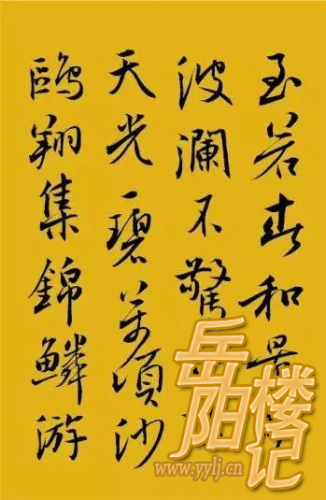 至若春和景
波瀾不驚
天光一碧萬頃沙
鷗翔集錦鱗游
岳阳楼记
www.yylj.cn